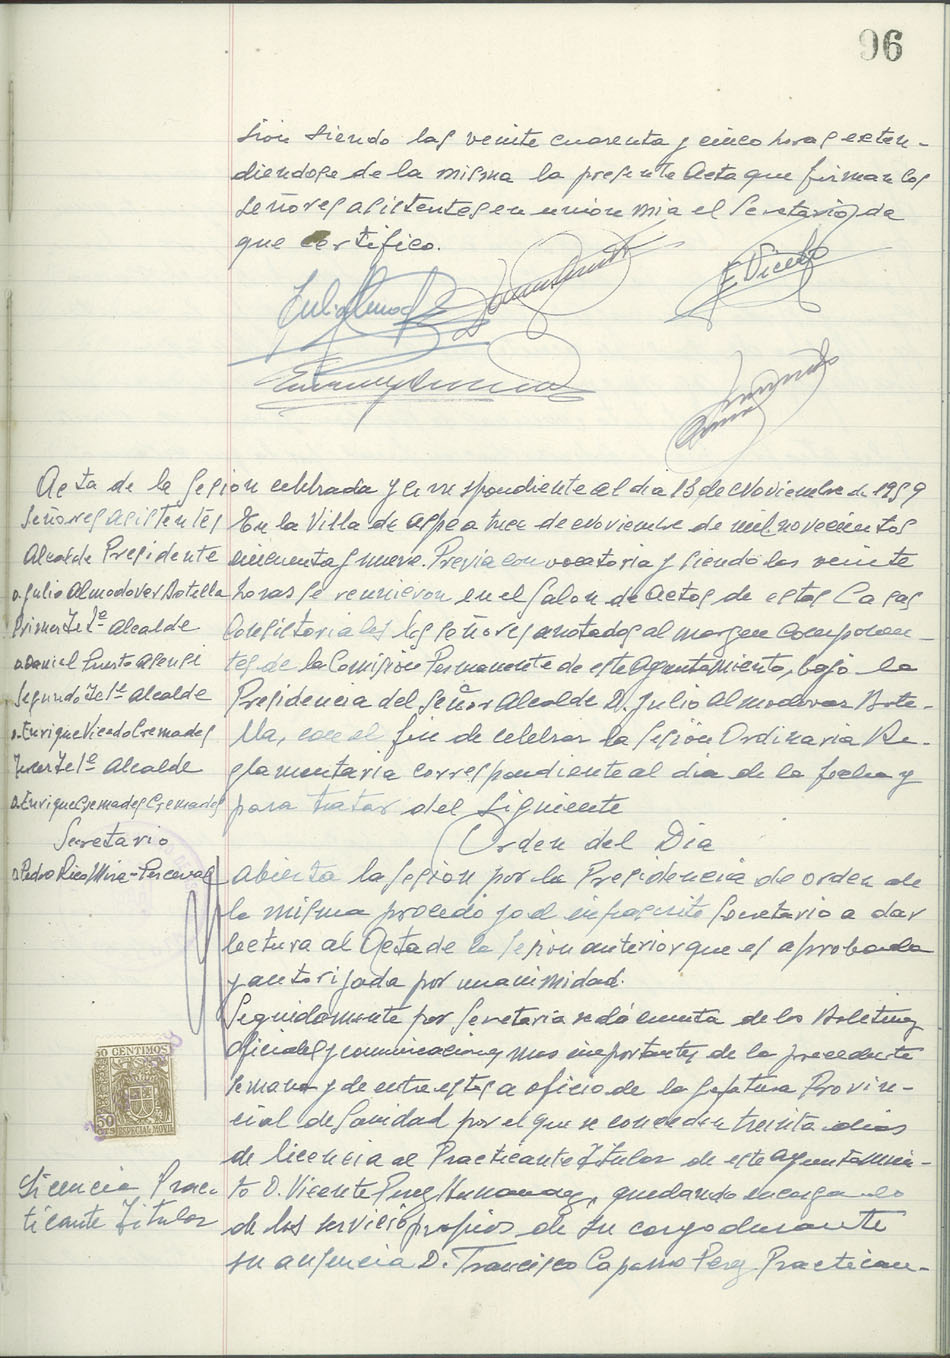 96
sion siendo las veinte cuarenta y cinco horas exten-
diendose de la misma la presente Acta que firman los
señores asistentes en union mia el Secretario, de
que certifico.
E Vicedo
Acta de la Sesion celebrada y correspondiente al dia 13 de Noviembre de 1959
Señores asistentes
Alcalde Presidente
D. Julio Almodovar Botella
Primer Tete Alcalde
D. Daniel Puerto Asensi
Segundo Tete Alcalde
D. Enrique Vicedo Cremades
Tercer Tete Alcalde
D. Enrique Cremades Cremades
Secretario
D. Pedro Rico Mira-Perceval
En la Villa de Aspe a trece de Noviembre de mil novecientos
cincuenta y nueve. Previa convocatoria y siendo las veinte
horas se reunieron en el Salon de Actos de estas Casas
Consistoriales los señores anotados al margen componen-
tes de la Comisión Permanente de este Ayuntamiento, bajo la
Presidencia del Señor Alcalde D. Julio Almodovar Bote-
lla, con el fin de celebrar la sesión Ordinaria Re-
glamentaria correspondiente al dia de la fecha y
para tratar del siguiente
Orden del Dia
Abierta la sesion por la Presidencia de orden de
la misma procedo yo el infrascrito Secretario a dar
lectura al Acta de la sesion anterior que es aprobada
y autorizada por unanimidad.
Seguidamente por Secretaria se dá cuenta de los Boletines
Oficiales y comunicaciones mas importantes de la precedente
semana y de entre estas a oficio de la Jefatura Provin-
cial de Sanidad por el que se conceden treinta dias
de licencia al Practicante Titular de este Ayuntamien-
to D. Vicente Perez, quedando encargado
de los servicios propios de su cargo durante
su ausencia D. Francisco Perez Practican-
50 CENTIMOS
50
CTS
ESPECIAL MOVIL
Licencia Prac-
ticante Titular